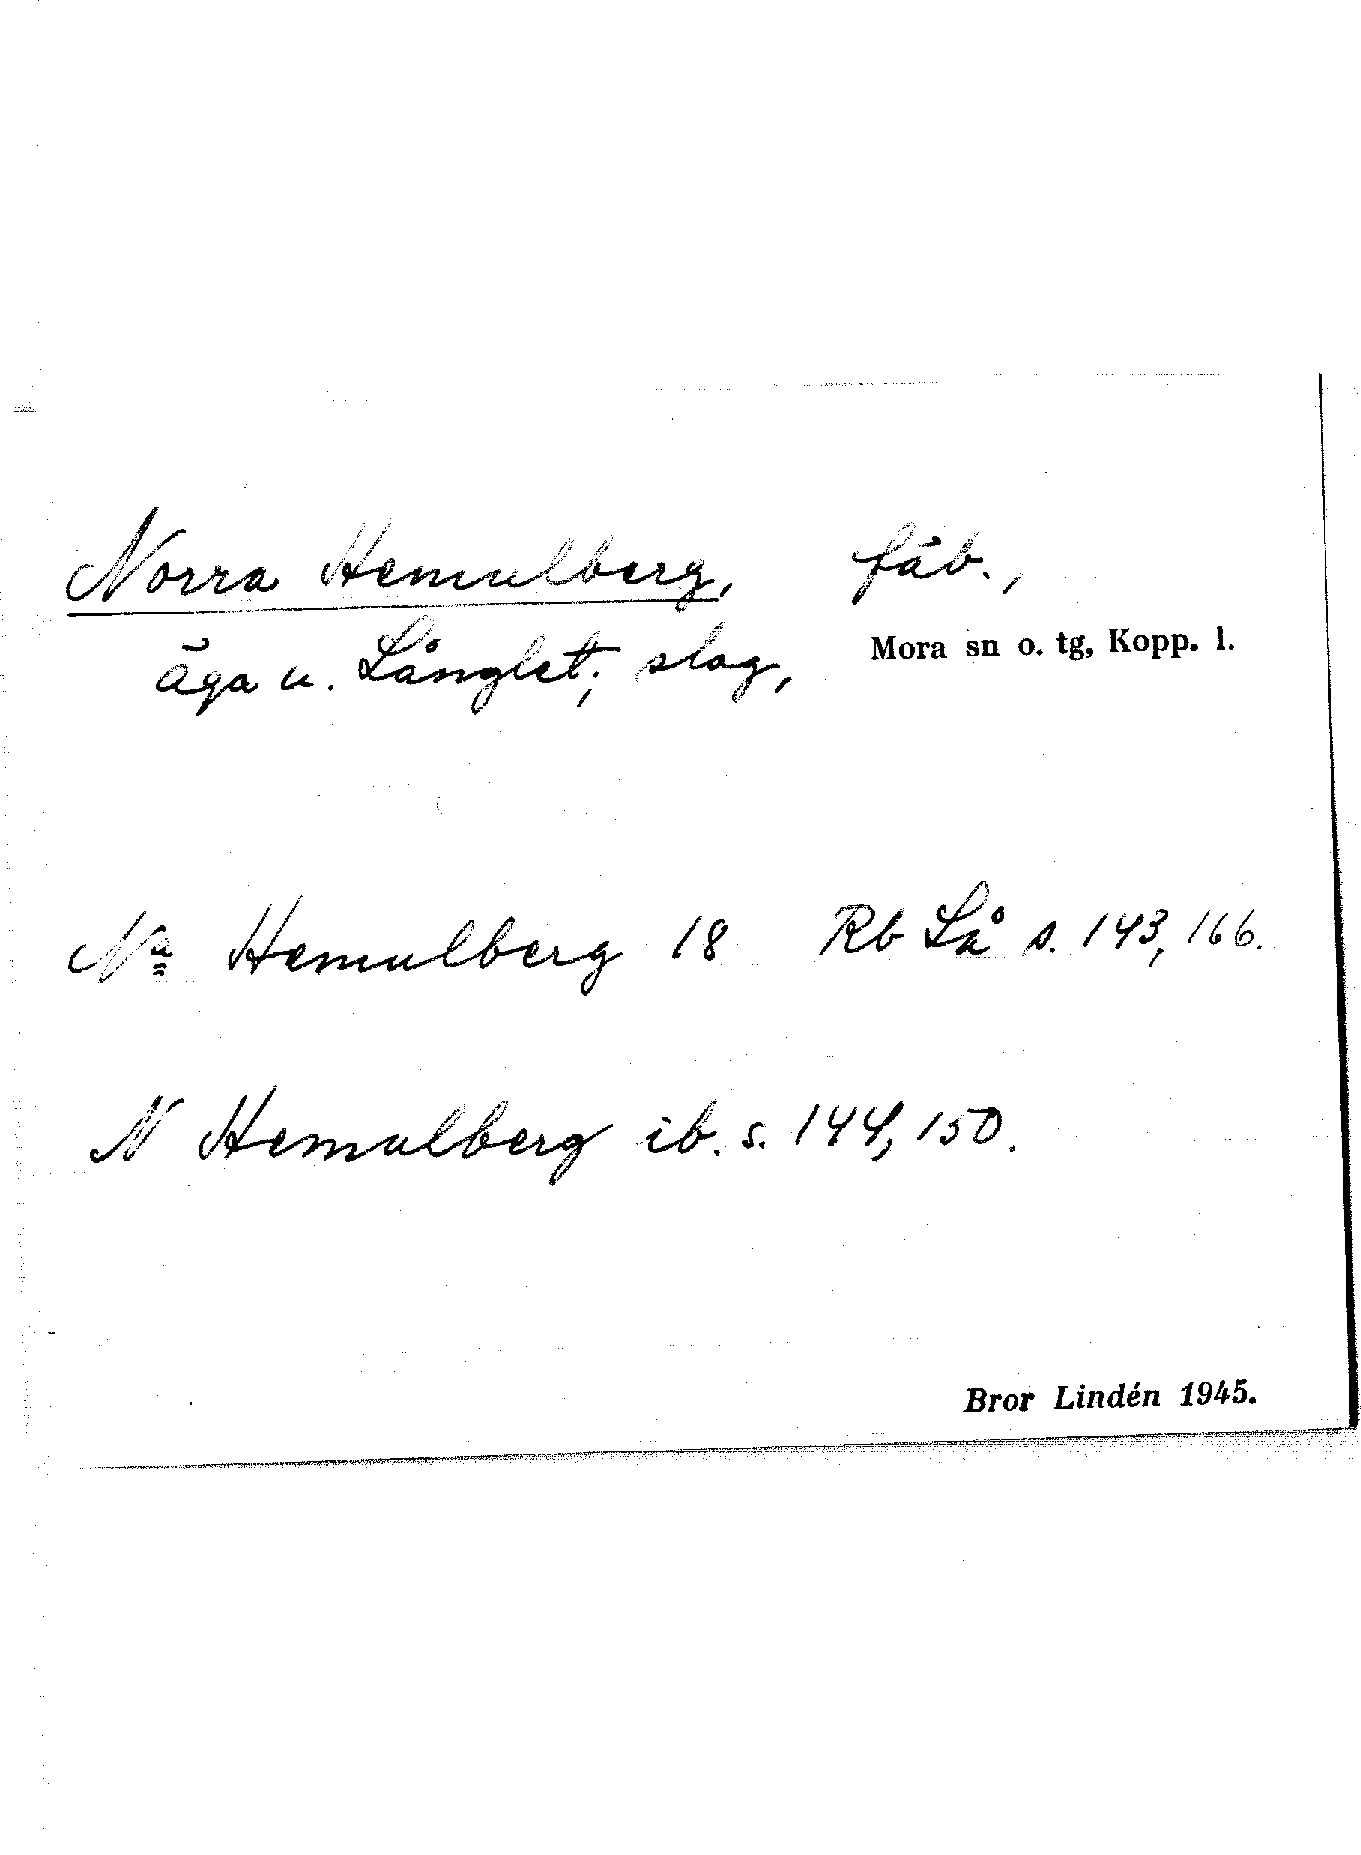 Norra Hemulberg, fäb.,
äga u. Långlet; slag, Mora sn o. tg, Kopp. l.
Na Hemulberg 18 Rb Lå s. 143, 166.
N Hemulberg ib. s. 144, 150.
Bror Lindén 1945.